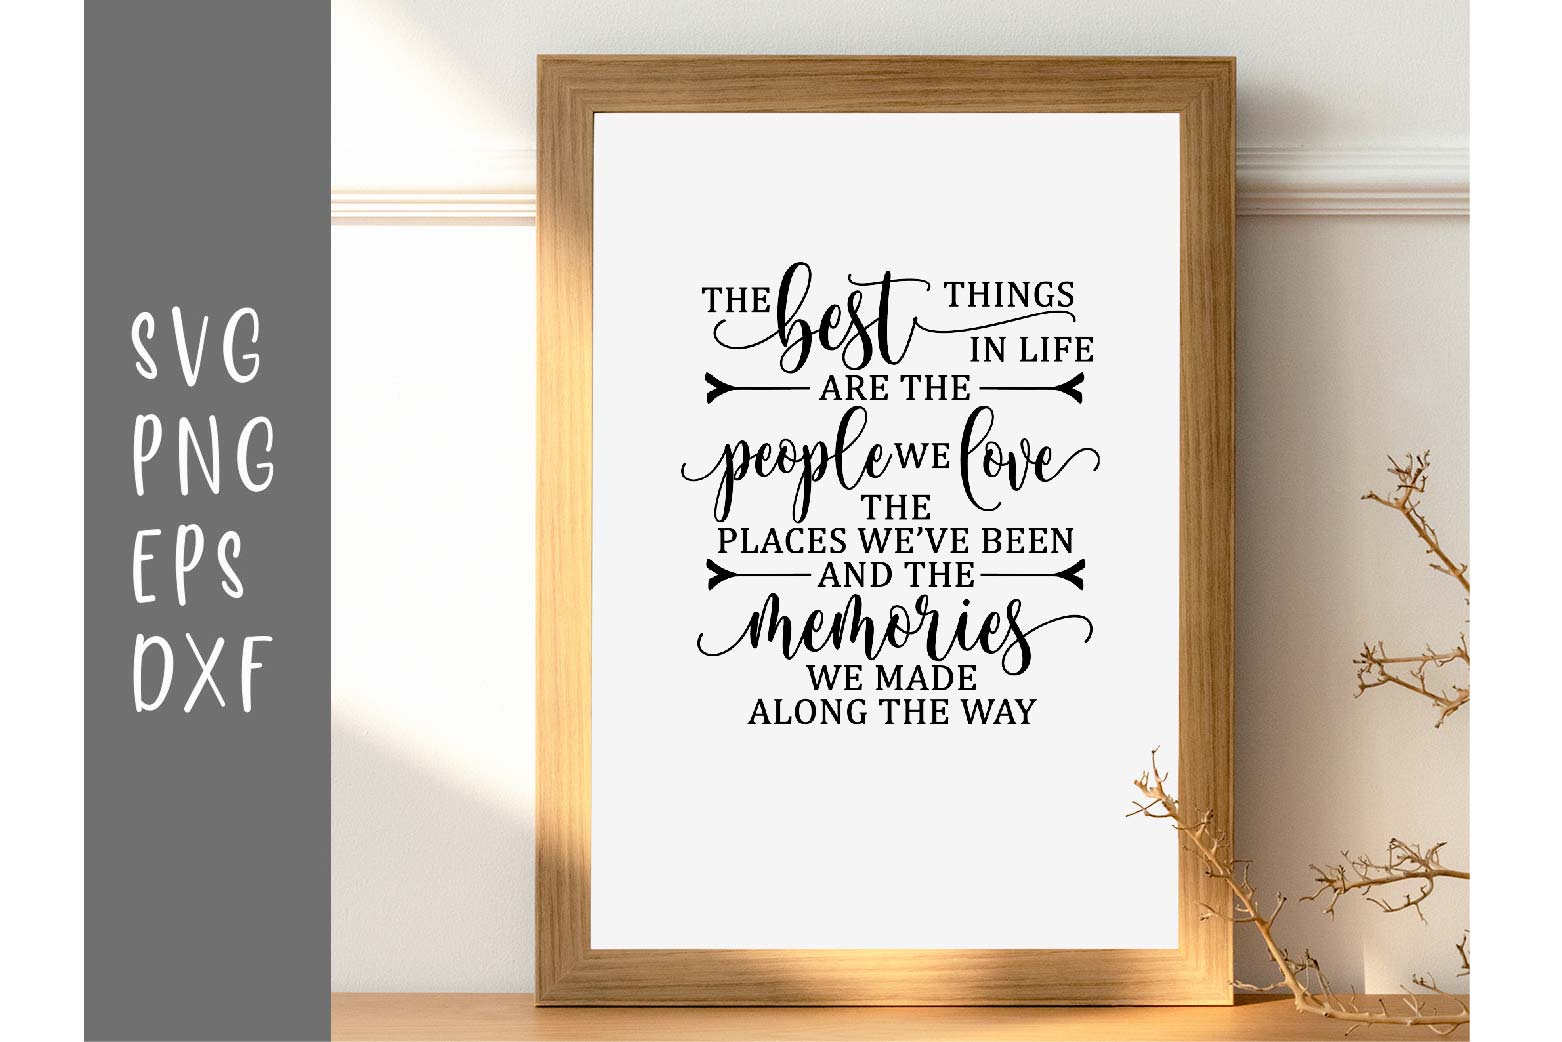 SVG
PNG
EPS
DXF
THE best THINGS
IN LIFE
ARE THE
people WE love
THE
PLACES WE'VE BEEN
AND THE
memories
WE MADE
ALONG THE WAY